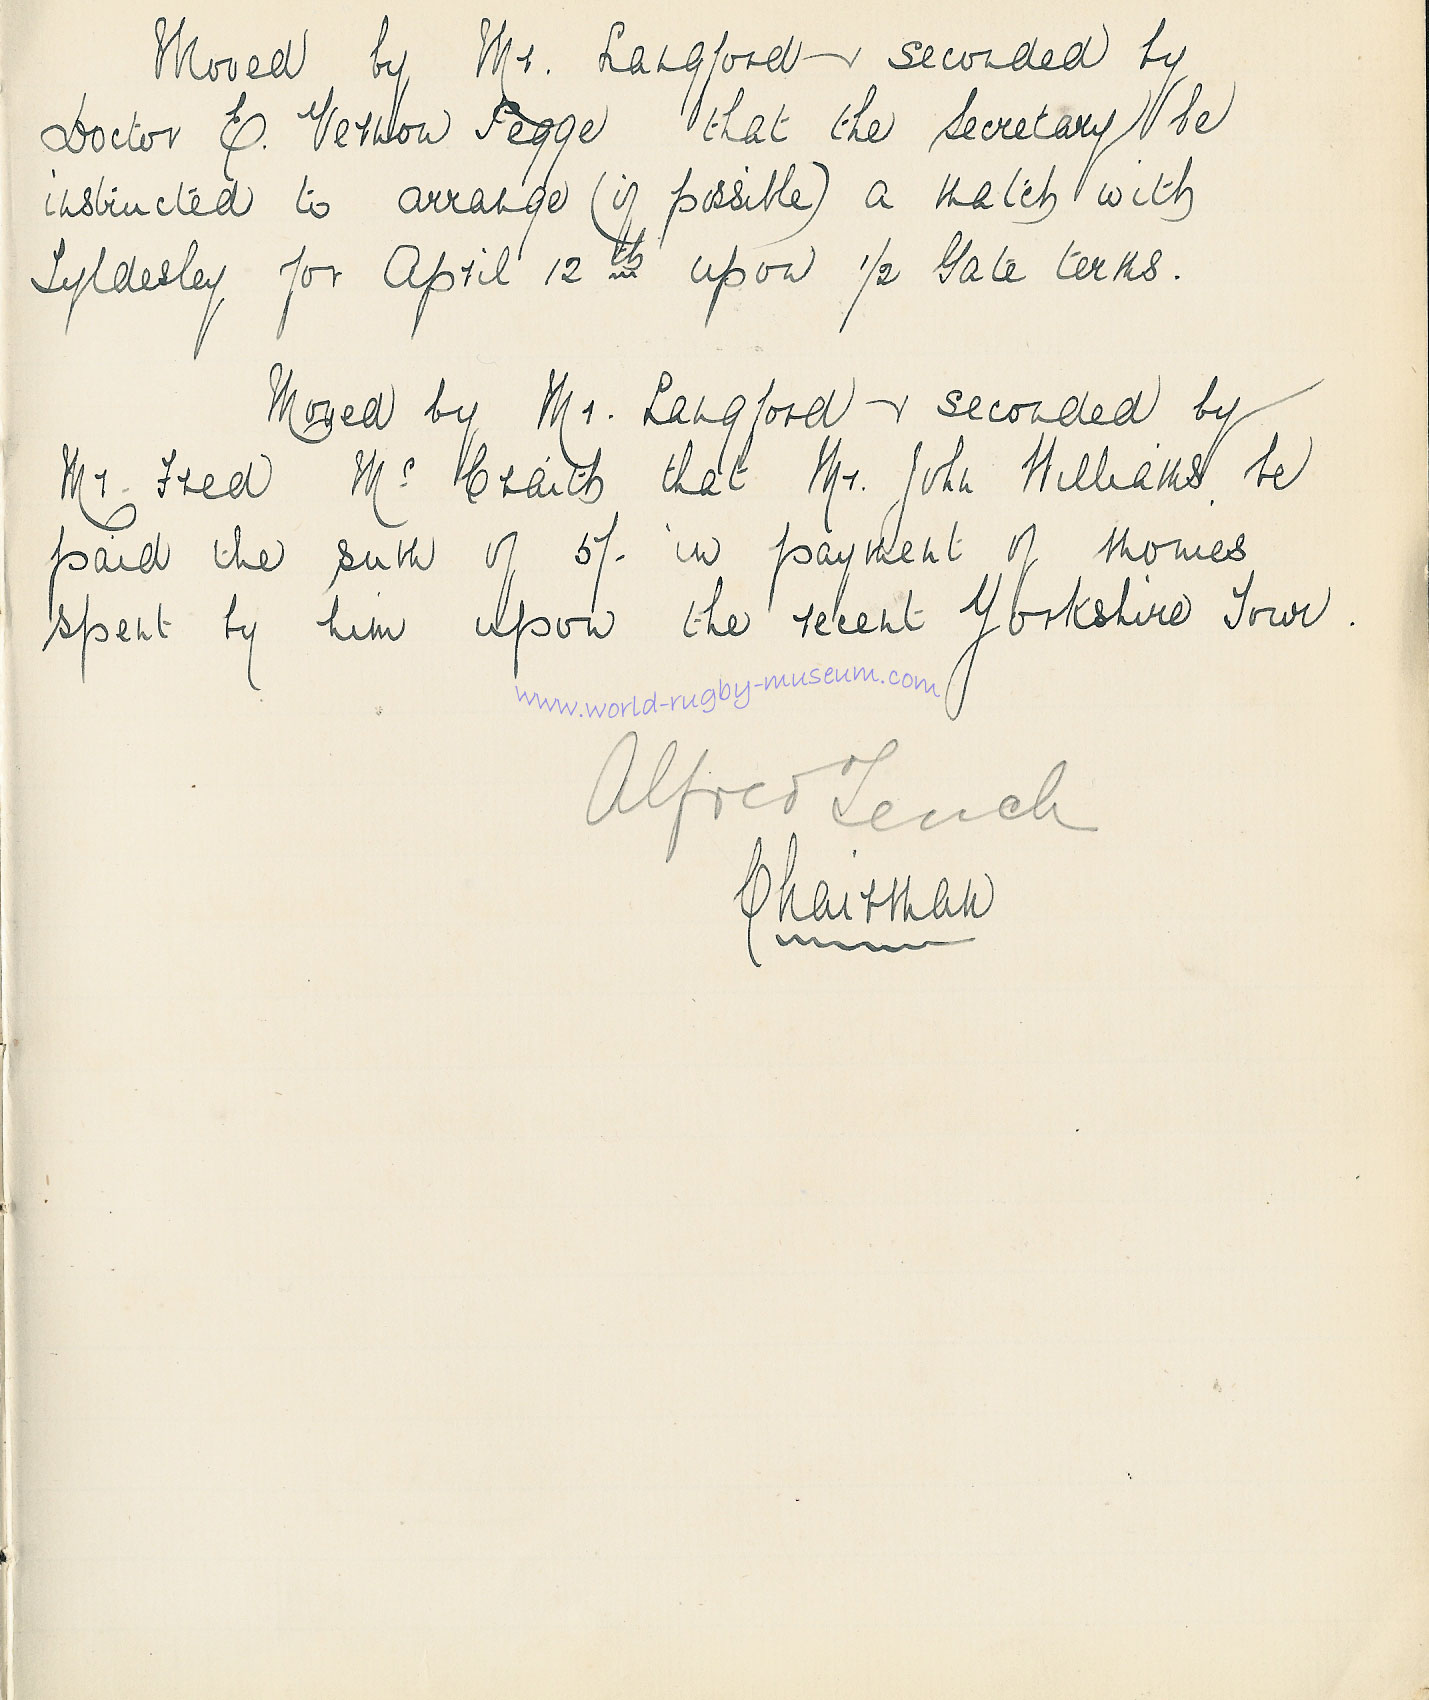 Moved by Mr. Langford & seconded by
Doctor E. Vernon Pegge that the Secretary be
instructed to arrange (if possible) a match with
Tyldesley for April 12th upon 1/2 Gate terms.
Moved by Mr. Langford & seconded by
Mr. Fred Mc Craith that Mr. John Williams be
paid the sum of 5/- in payment of monies
spent by him upon the recent Yorkshire Tour.
www.world-rugby-museum.com
Alfred Tench
Chairman